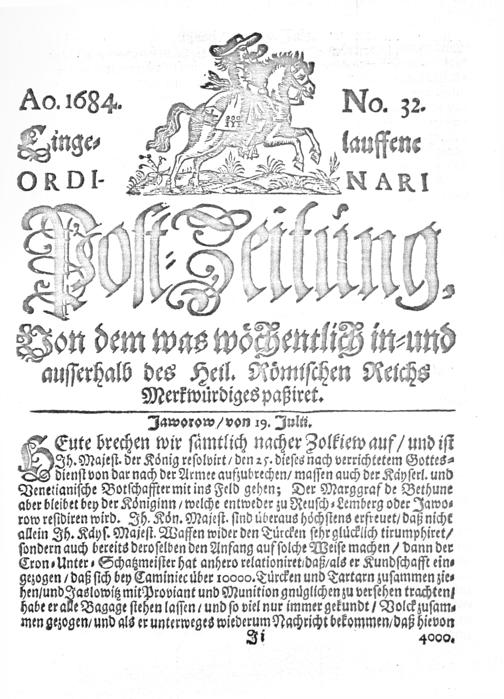 Ao. 1684. No. 32.
Einge- lauffene
ORDI- NARI
Post-Zeitung,
Von dem was wöchentlich in-und
ausserhalb des Heil. Römischen Reichs
Merkwürdiges paßiret.
Jaworow/von 19. Julii.
HEute brechen wir sämtlich nacher Zolkiew auf/ und ist
Ih. Majest. der König resolvirt/ den 25. dieses nach verrichtetem Gottes-
dienst von dar nach der Armee aufzubrechen/ massen auch der Käyserl. und
Venetianische Botschaffter mit ins Feld gehen; Der Marggraf de Bethune
aber bleibet bey der Königinn/ welche entweder zu Reusch-Lemberg oder Jawo-
row residiren wird. Ih. Kön. Majest. sind überaus höchstens erfreuet/ daß nicht
allein Ih. Käys. Majest. Waffen wider den Türcken sehr glücklich tirumphiret/
sondern auch bereits deroselben den Anfang auf solche Weise machen/ dann der
Cron-Unter-Schatzmeister hat anhero relationiret/daß/als er Kundschafft ein-
gezogen/ daß sich bey Caminiec über 10000. Türcken und Tartarn zusammen zie-
hen/und Jaslowitz mit Proviant und Munition gnüglichen zu versehen trachten/
habe er alle Bagage stehen lassen/ und so viel nur immer gekundt/ Volck zusam-
men gezogen/ und als er unterweges wiederum Nachricht bekommen/ daß hievon
Ii 4000.